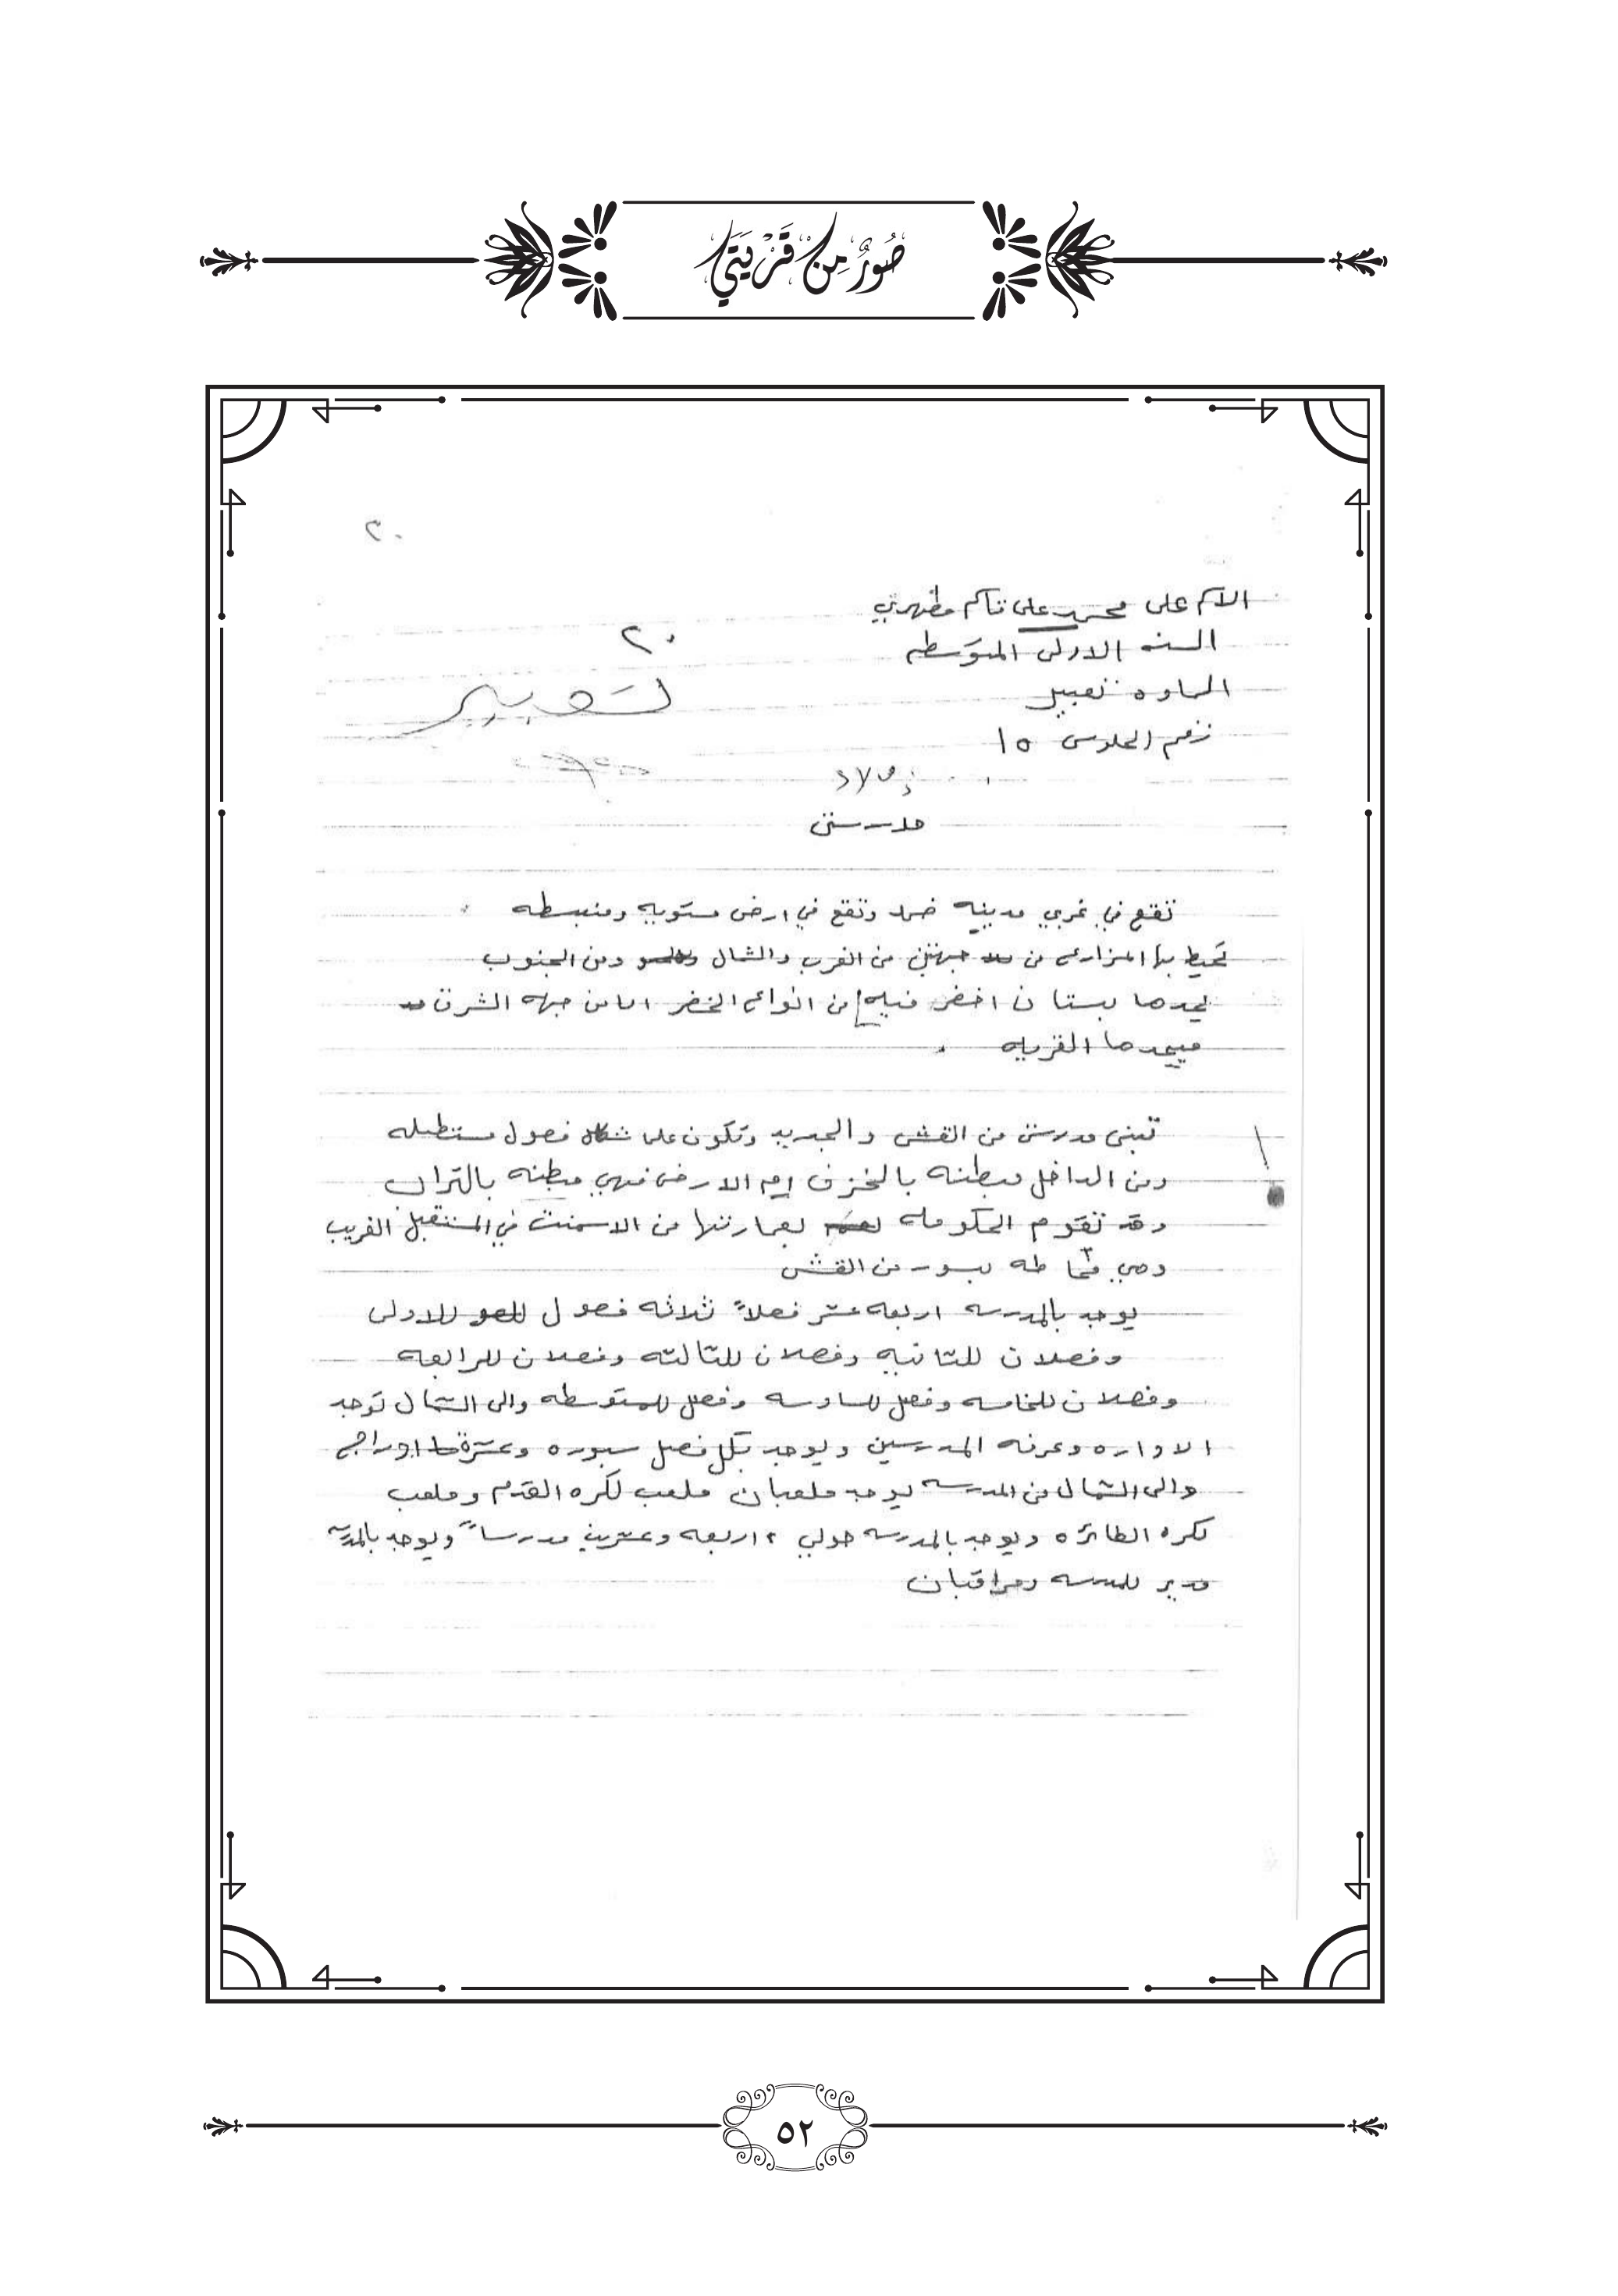 صُورٌ مِن قَرْيَتِي
٢٠
الاسم على محمد على قاسم مطهري
السنه الاولى المتوسطه
٢٠
الماده تعبير
تعبير
رقم الجلوس ١٥
مدرستى
تقع في غربي مدينه ضمد وتقع في ارض مستويه ومنبسطه
تحيط بها المزارع من جهتين من الغرب والشمال ومن الجنوب
يحدها بستان اخضر فيه من انواع الخضر اما من جهه الشرق
فيحدها القريه
تبنى مدرستى من القش والجريد وتكون على شكل فصول مستطيله
ومن الداخل مبطنه بالخزف اما الارض فهي مبطنه بالتراب
وقد تقوم الحكومه بعمارتها من الاسمنت في المستقبل القريب
وهي محاطه بسور من القش
يوجد بالمدرسه اربعه عشر فصلاً ثلاثه فصول للاولى
وفصلان للثانيه وفصلان للثالثه وفصلان للرابعه
وفصلان للخامسه وفصل للسادسه وفصل للمتوسطه والى الشمال توجد
الاداره وغرفه المدرسين ويوجد بكل فصل سبوره وعشرة ادراج
والى الشمال من المدرسه يوجد ملعبان ملعب لكره القدم وملعب
لكره الطائره ويوجد بالمدرسه حولي اربعه وعشرين مدرساً ويوجد بالمدرسه
مدير للمدرسه ومراقبان
٥٢